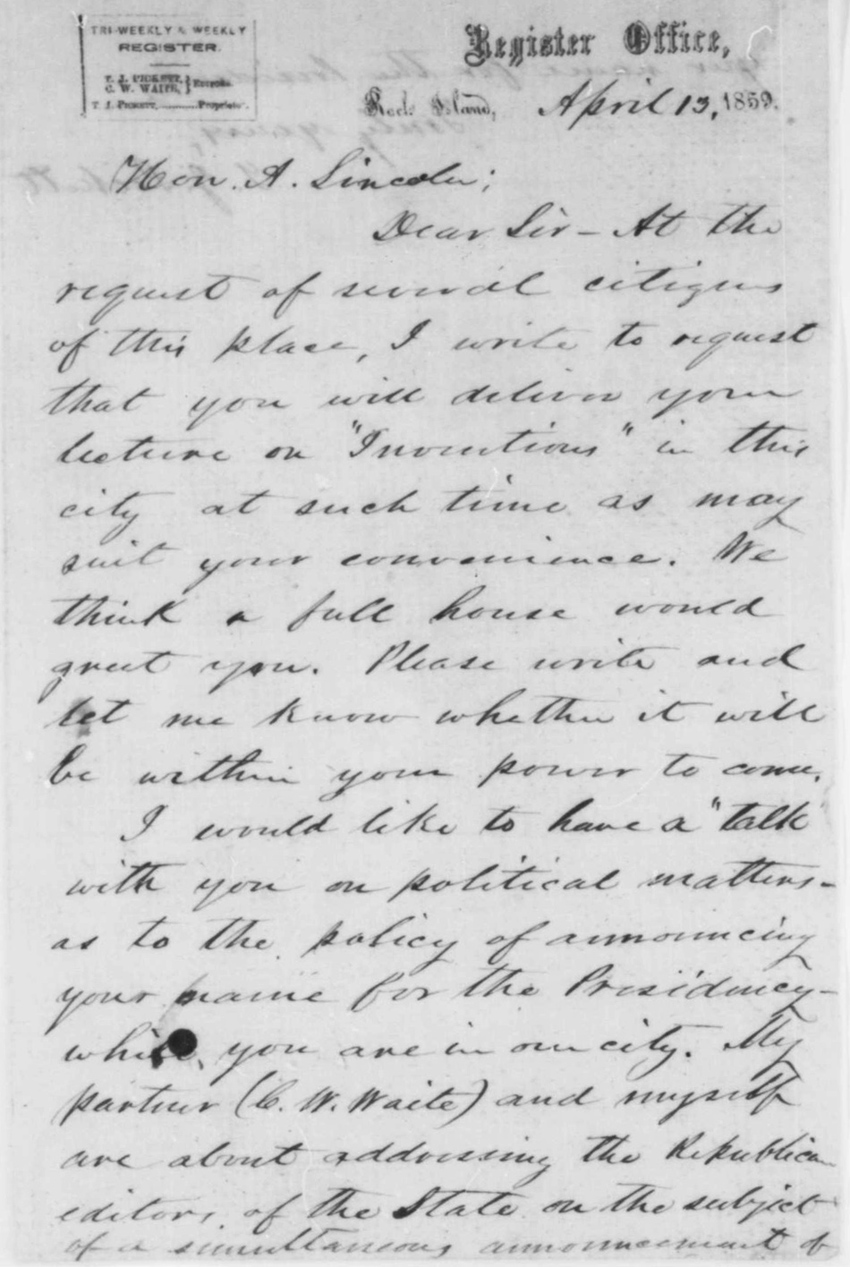 TRI-WEEKLY & WEEKLY
REGISTER.
T. J. PICKETT,
C. W. WAITE, } Editors.
T. J. PICKETT, Proprietor.
Register Office,
Rock Island, April 13, 1859.
Hon. A. Lincoln;
Dear Sir - At the
request of several citizens
of this place, I write to request
that you will deliver your
lecture on "Inventions" in this
city at such time as may
suit your convenience. We
think a full house would
greet you. Please write and
let me know whether it will
be within your power to come.
I would like to have a "talk
with you on political matters -
as to the policy of announcing
your name for the Presidency -
while you are in our city. My
partner (C. W. Waite) and myself
are about addressing the Republican
editors of the State on the subject
of a simultaneous announcement of